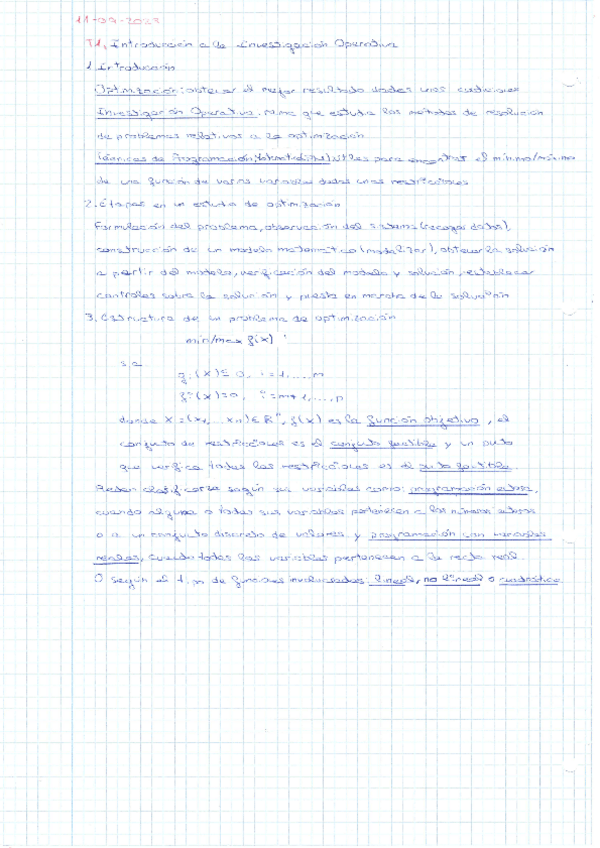 11-09-2023
T1. Introducción a la Investigación Operativa
1. Introducción
Optimización: obtener el mejor resultado dadas unas condiciones
Investigación Operativa: rama que estudia los métodos de resolución
de problemas relativos a la optimización
Técnicas de Programación Matemática: útiles para encontrar el mínimo/máximo
de una función de varias variables dadas unas restricciones
2. Etapas en un estudio de optimización
Formulación del problema, observación del sistema (recoger datos),
construcción de un modelo matemático (modelizar), obtener la solución
a partir del modelo, verificación del modelo y solución, establecer
controles sobre la solución y puesta en marcha de la solución
3. Estructura de un problema de optimización
min/max f(x)
s.a
g_i(x) ≤ 0, i=1,...,m
(x)=0, i=m+1,...,p
donde x=(x1,...xn)∈R^n, f(x) es la función objetivo, el
conjunto de restricciones es el conjunto factible y un punto
que verifica todas las restricciones es el punto factible.
Pueden clasificarse según sus variables como: programación entera,
cuando alguna o todas sus variables pertenecen a los números enteros
o a un conjunto discreto de valores y programación con variables
reales, cuando todas las variables pertenecen a la recta real.
O según el tipo de funciones involucradas: lineal, no lineal o cuadrática.